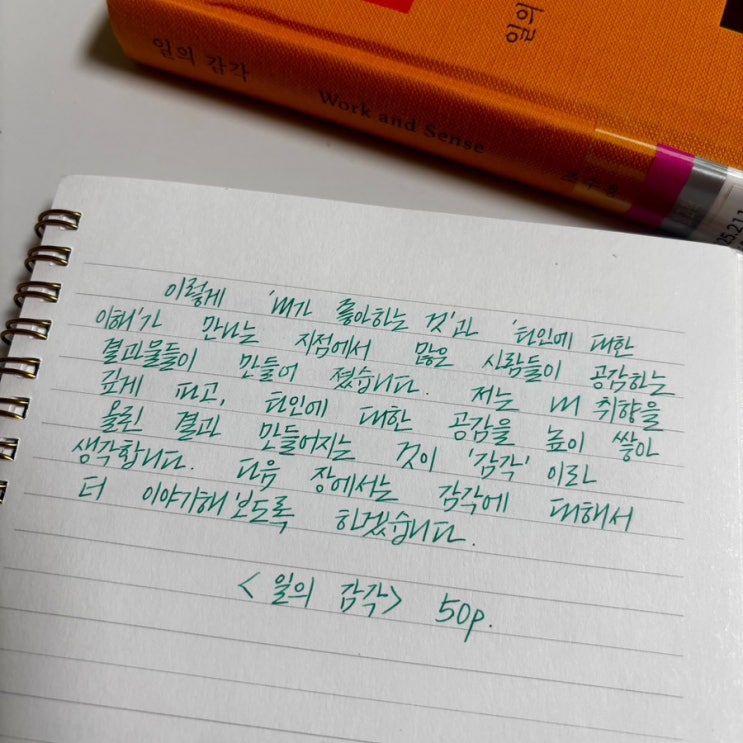 일의
일의 감각
Work and Sense
조수용
25.211
이렇게 '내가 좋아하는 것'과 '타인에 대한
이해'가 만나는 지점에서 많은 사람들이 공감하는
결과물들이 만들어 졌습니다. 저는 내 취향을
깊게 파고, 타인에 대한 공감을 높이 쌓아
올린 결과 만들어지는 것이 '감각' 이라
생각합니다. 다음 장에서는 감각에 대해서
더 이야기해 보도록 하겠습니다.
<일의 감각> 50p.